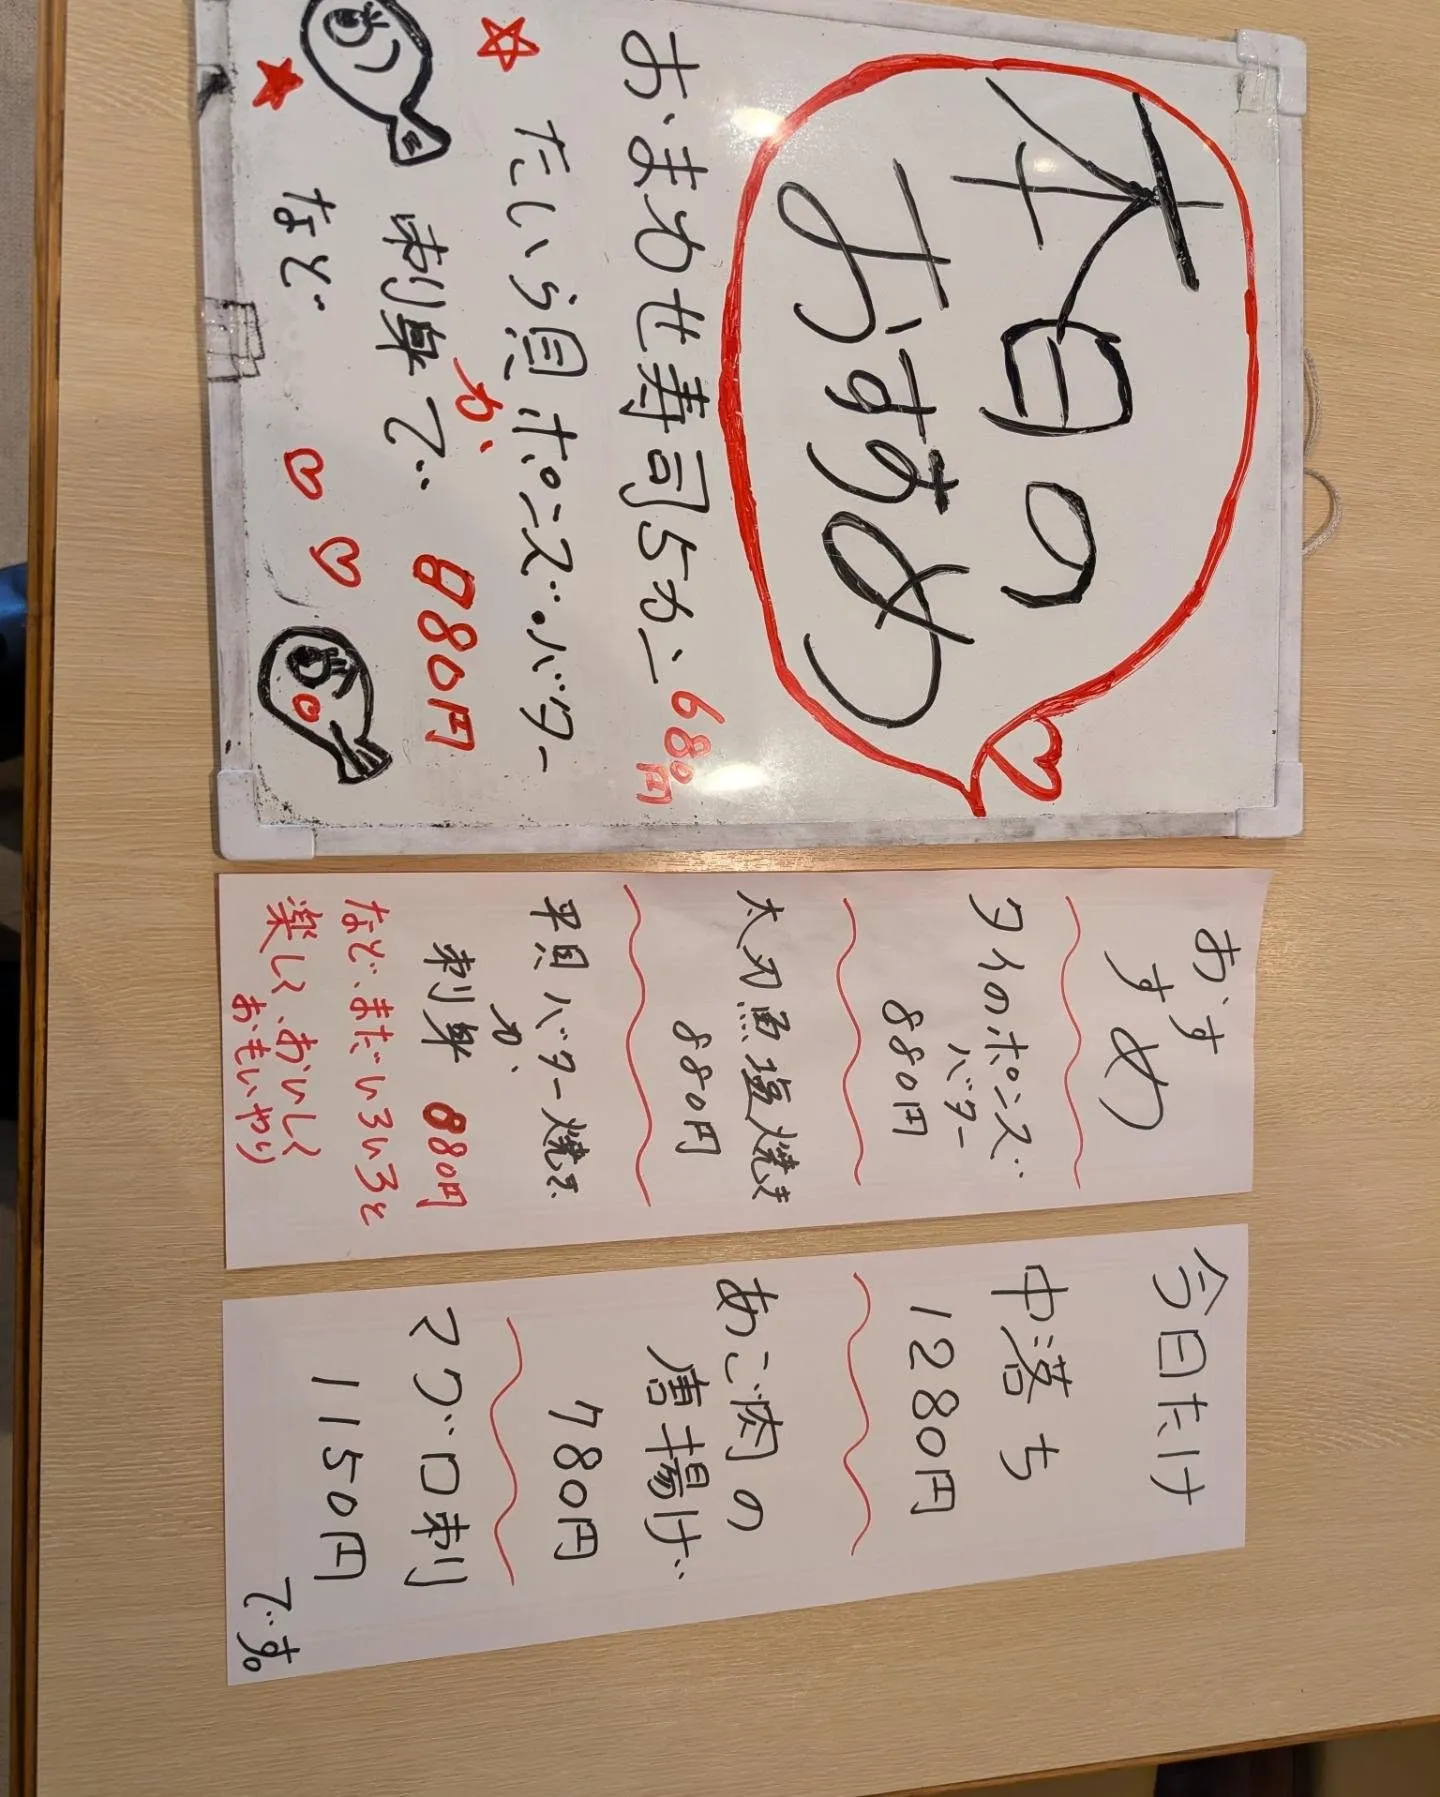 本日の
おすすめ
おまかせ寿司5カン680円
たいら貝ポンズ・バター
か
刺身で 880円
など
おすすめ
タイのポンズ
バター
880円
太刀魚塩焼き
880円
平貝バター焼き
か
刺身 880円
など、まだいろいろと
楽しく、おいしく
おもいやり
今日だけ
中落ち
1280円
あご肉の
唐揚げ
780円
マグロ刺
1150円
です。